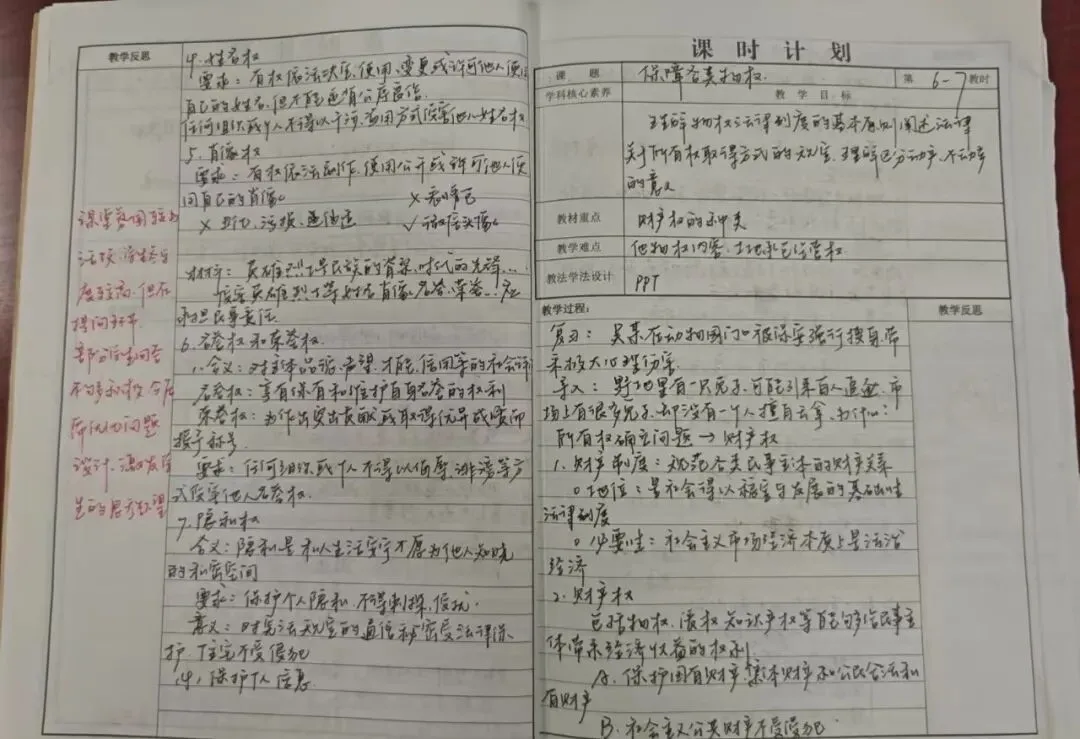 教学反思
4. 姓名权
要求：有权依法决定、使用、变更或许可他人使用
自己的姓名，但不能违背公序良俗
任何组织或个人不得以干涉、盗用方式侵害他人姓名权
5. 肖像权
要求：有权依法制作、使用公开或许可他人使
用自己的肖像。
× 丑化、污损、
材料：英雄烈士是民族的脊梁、时代的先锋…
侵害英雄烈士等姓名、肖像、名誉、荣誉…应
承担民事责任
6. 名誉权和荣誉权
1. 含义：对主体品德、声望、才能、信用等的社会评
名誉权：享有保有和维护自身名誉的权利
荣誉权：为作出突出贡献或取得优异成绩而
授予称号
要求：任何组织或个人不得以侮辱、诽谤等方
式侵害他人名誉权
7. 隐私权
含义：隐私是私人生活安宁不愿为他人知晓
的私密空间
要求：保护个人隐私，不得刺探、侵扰.
意义：对宪法规定的通信秘密受法律保
护、住宅不受侵犯
保护个人信息
课堂氛围较为
活跃，学生参与
度较高，但在
提问环节
部分学生回答
不够积极，今后
问题
设计，激发学
生的思考
课时计划
课题
保障各类物权
第 6-7 教时
学科核心素养
教学目标
理解物权法律制度的基本原则，阐述法律
关于所有权取得方式的规定，理解区分动产、不动产
的意义
教材重点
财产权的种类
教学难点
他物权内容、土地承包经营权
教法学法设计
PPT
教学过程：
教学反思
复习：吴某在动物园门口被保安强行搜身，带
来极大心理伤害
导入：野地里有一只兔子，可能引来百人追逐，市
场上有很多兔子，却没有一个人擅自去拿，为什么？
所有权确定问题 → 财产权
1. 财产制度：规范各类民事主体的财产关系
地位：是社会得以稳定与发展的基础性
法律制度
必要性：社会主义市场经济本质上是法治
经济
2. 财产权
包括物权、债权、知识产权等能够给民事主
体带来经济收益的权利
A. 保护国有财产、集体财产和公民合法私
有财产
B. 社会主义公共财产不受侵犯